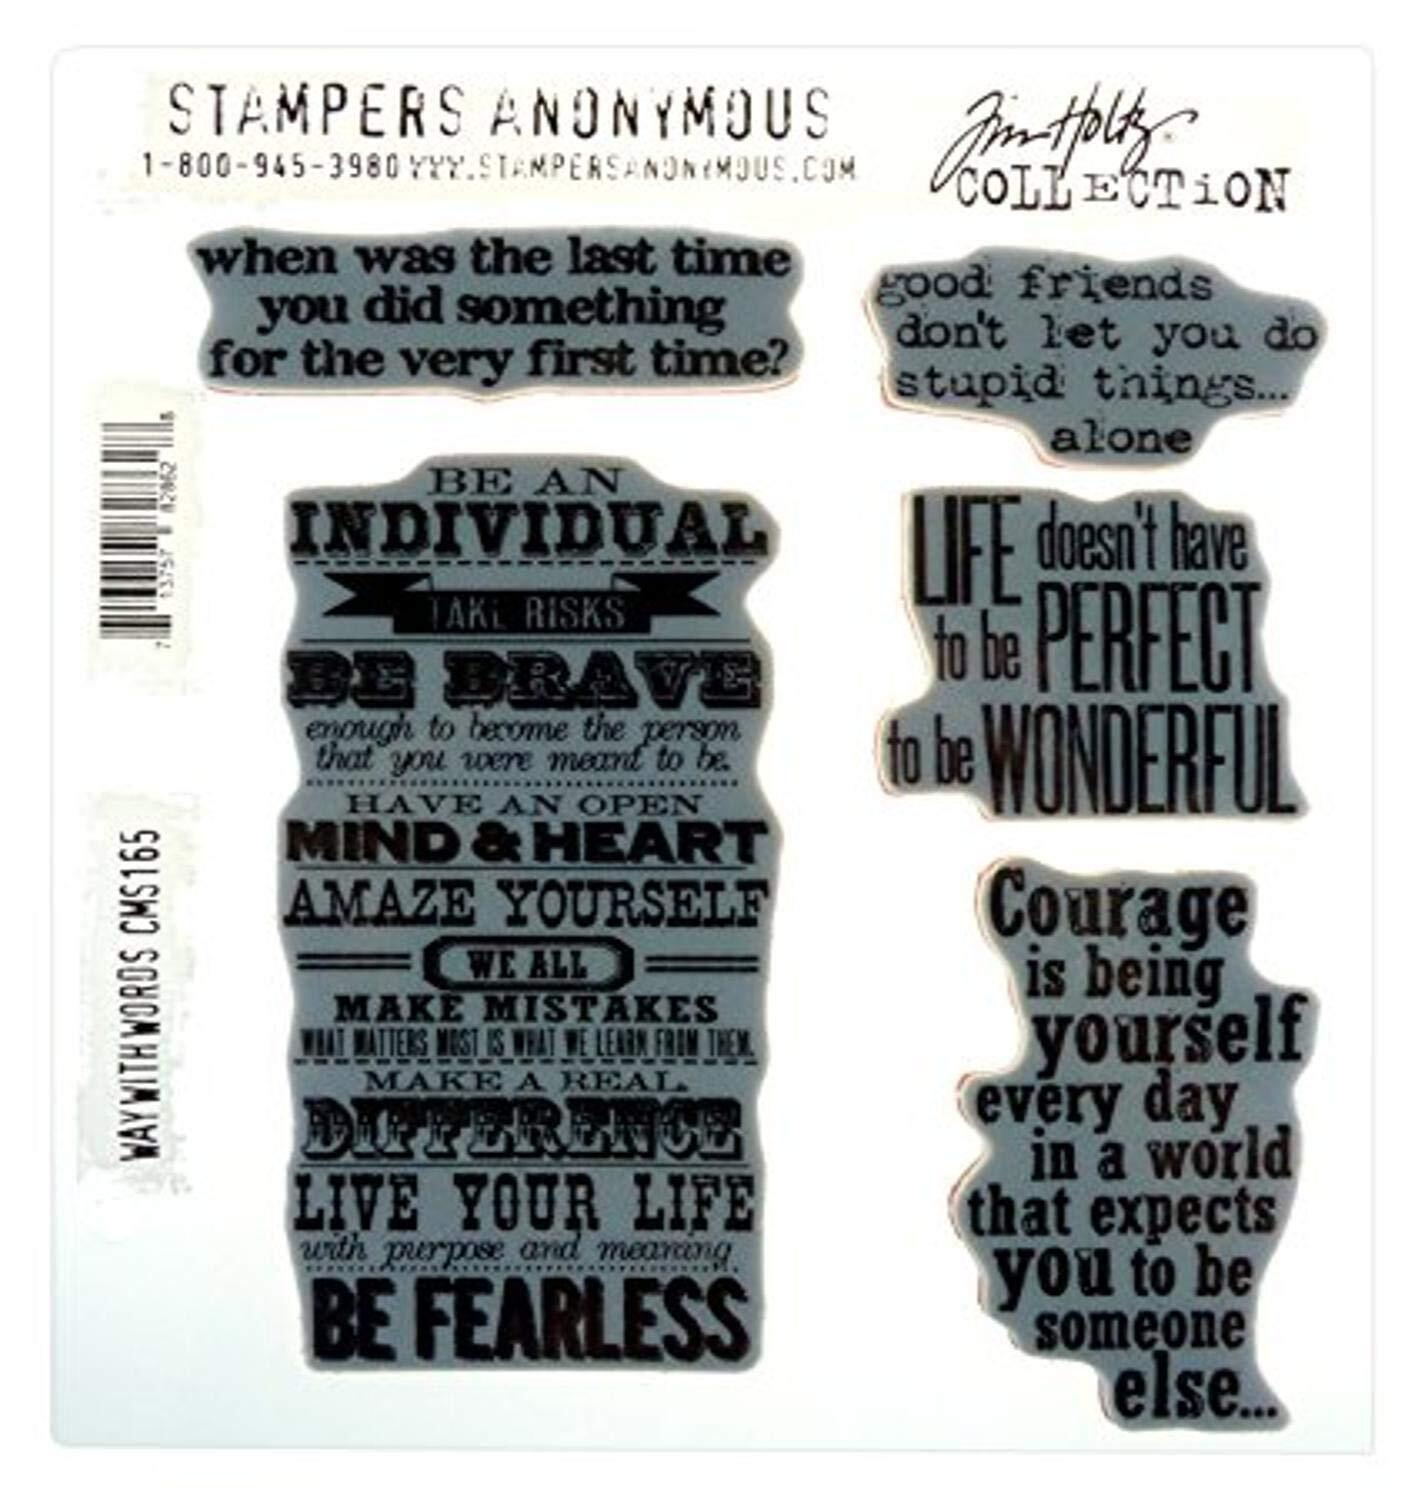 STAMPERS ANONYMOUS
1-800-945-3980 WWW.STAMPERSANONYMOUS.COM
Tim Holtz
COLLECTiON
when was the last time
you did something
for the very first time?
good friends
don't let you do
stupid things...
alone
BE AN
INDIVIDUAL
TAKE RISKS
BE BRAVE
enough to become the person
that you were meant to be.
HAVE AN OPEN
MIND & HEART
AMAZE YOURSELF
WE ALL
MAKE MISTAKES
WHAT MATTERS MOST IS WHAT WE LEARN FROM THEM.
MAKE A REAL
DIFFERENCE
LIVE YOUR LIFE
with purpose and meaning.
BE FEARLESS
LIFE doesn't have
to be PERFECT
to be WONDERFUL
Courage
is being
yourself
every day
in a world
that expects
you to be
someone
else...
7 13757 82862 8
WAY WITH WORDS CMS165